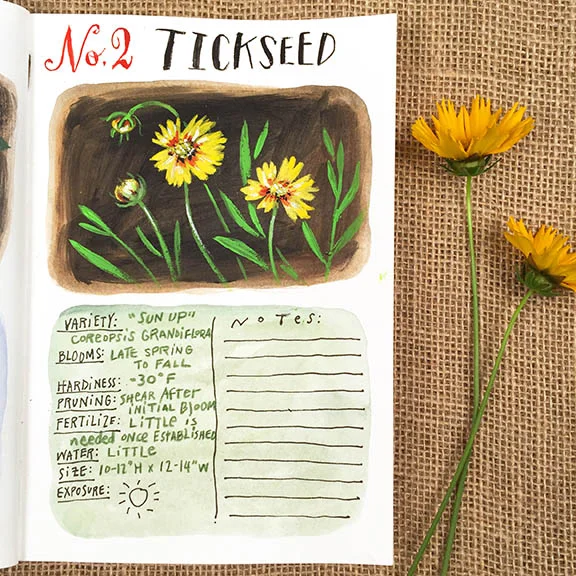 No. 2 TICKSEED
VARIETY: "SUN UP"
COREOPSIS GRANDIFLORA
BLOOMS: LATE SPRING
TO FALL
HARDINESS: -30°F
PRUNING: SHEAR AFTER
INITIAL BLOOM
FERTILIZE: LITTLE IS
needed ONCE ESTABLISHED
WATER: LITTLE
SIZE: 10-12"H x 12-14"W
EXPOSURE:
NOTES: